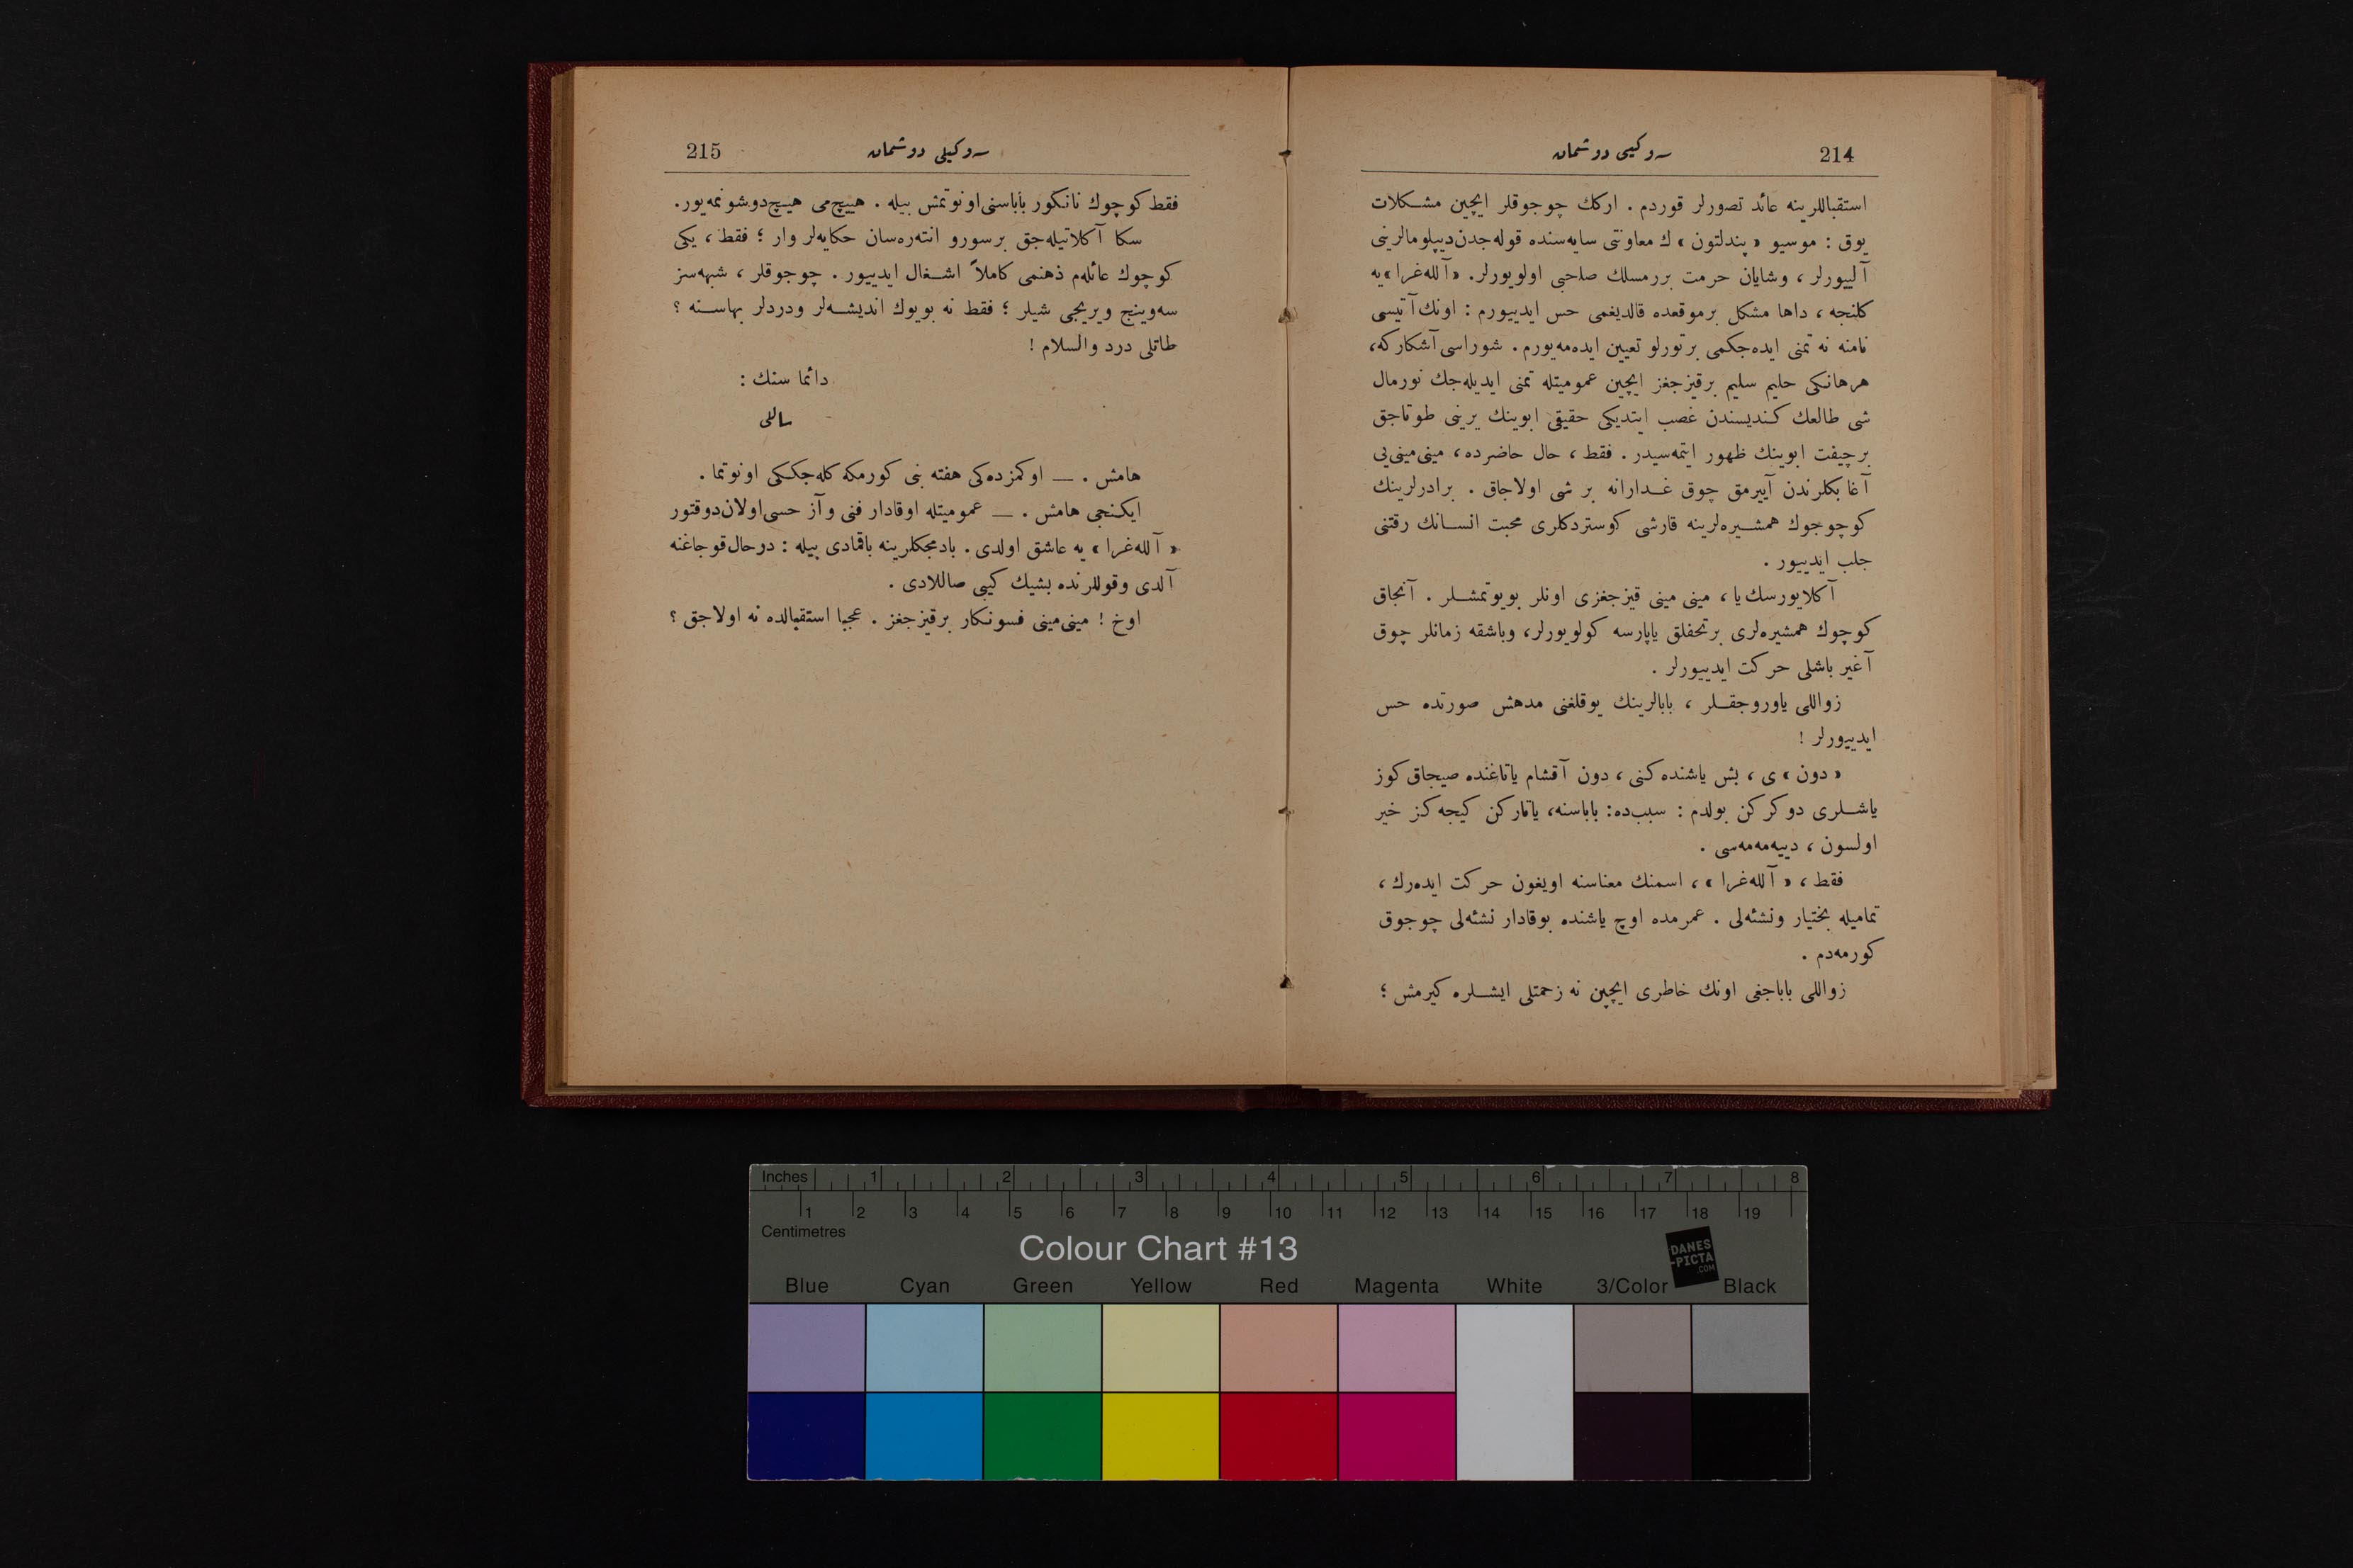 214
سوکیلی دوشمان
استقباللرینه عائد تصورلر قوردم . ارکك چوجوقلر ایچین مشکلات
یوق : موسیو « پندلتون » ك معاونتی سایه‌سنده قوله‌جدن دیپلومالرینی
آلییورلر ، وشایان حرمت بررمسلك صاحبی اولویورلر. « آلله‌غرا » یه
کلنجه ، داها مشکل برموقعده قالدیغمی حس ایدییورم : اونك آتیسی
نامنه نه تمنی ایده‌جکمی برتورلو تعیین ایده‌مه‌یورم . شوراسی آشکارکه،
هرهانکی حلیم سلیم برقیزجغز ایچین عمومیتله تمنی ایدیله‌جك نورمال
شی طالعك کندیسندن غصب ایتدیکی حقیقی ابوینك یرینی طوتاجق
برچیفت ابوینك ظهور ایتمه‌سیدر . فقط ، حال حاضرده ، مینی‌مینی‌یی
آغابکلرندن آییرمق چوق غدارانه بر شی اولاجاق . برادرلرینك
کوچوجوك همشیره‌لرینه قارشی کوستردکلری محبت انسانك رقتنی
جلب ایدییور .
آکلایورسك یا ، مینی مینی قیزجغزی اونلر بویوتمشلر . آنجاق
کوچوك همشیره‌لری برتحفلق یاپارسه کولویورلر، وباشقه زمانلر چوق
آغیر باشلی حرکت ایدییورلر .
زواللی یاوروجقلر ، بابالرینك یوقلغنی مدهش صورتده حس
ایدییورلر !
« دون » ی ، بش یاشنده‌کنی ، دون آقشام یاتاغنده صیجاق کوز
یاشلری دوکرکن بولدم : سبب‌ده: باباسنه، یاتارکن کیجه‌کز خیر
اولسون ، دییه‌مه‌مه‌سی .
فقط ، « آلله‌غرا » ، اسمنك معناسنه اویغون حرکت ایده‌رك ،
تمامیله بختیار ونشئه‌لی . عمرمده اوچ یاشنده بوقادار نشئه‌لی چوجوق
کورمه‌دم .
زواللی باباجغی اونك خاطری ایچین نه زحمتلی ایشلره کیرمش ؛
215
سوکیلی دوشمان
فقط کوچوك نانکور باباسنی اونوتمش بیله . هییچ می هیچ دوشونمه‌یور.
سکا آکلاتیله‌جق برسورو انته‌ره‌سان حکایه‌لر وار ؛ فقط ، یکی
کوچوك عائله‌م ذهنمی کاملاً اشغال ایدییور . چوجوقلر ، شبهه‌سز
سه‌وینج ویریجی شیلر ؛ فقط نه بویوك اندیشه‌لر ودردلر بهاسنه ؟
طاتلی درد والسلام !
دائما سنك :
ساللی
هامش . — اوکمزده‌کی هفته بنی کورمکه کله‌جککی اونوتما .
ایکنجی هامش . — عمومیتله اوقادار فنی وآز حسی اولان دوقتور
« آلله‌غرا » یه عاشق اولدی . بادمجکلرینه باقمادی بیله : درحال قوجاغنه
آلدی وقوللرنده بشیك کیبی صاللادی .
اوخ ! مینی مینی فسونکار برقیزجغز . عجبا استقبالده نه اولاجق ؟
Inches 1 2 3 4 5 6 7 8
1 2 3 4 5 6 7 8 9 10 11 12 13 14 15 16 17 18 19
Centimetres
Colour Chart #13
DANES
-PICTA
.COM
Blue Cyan Green Yellow Red Magenta White 3/Color Black